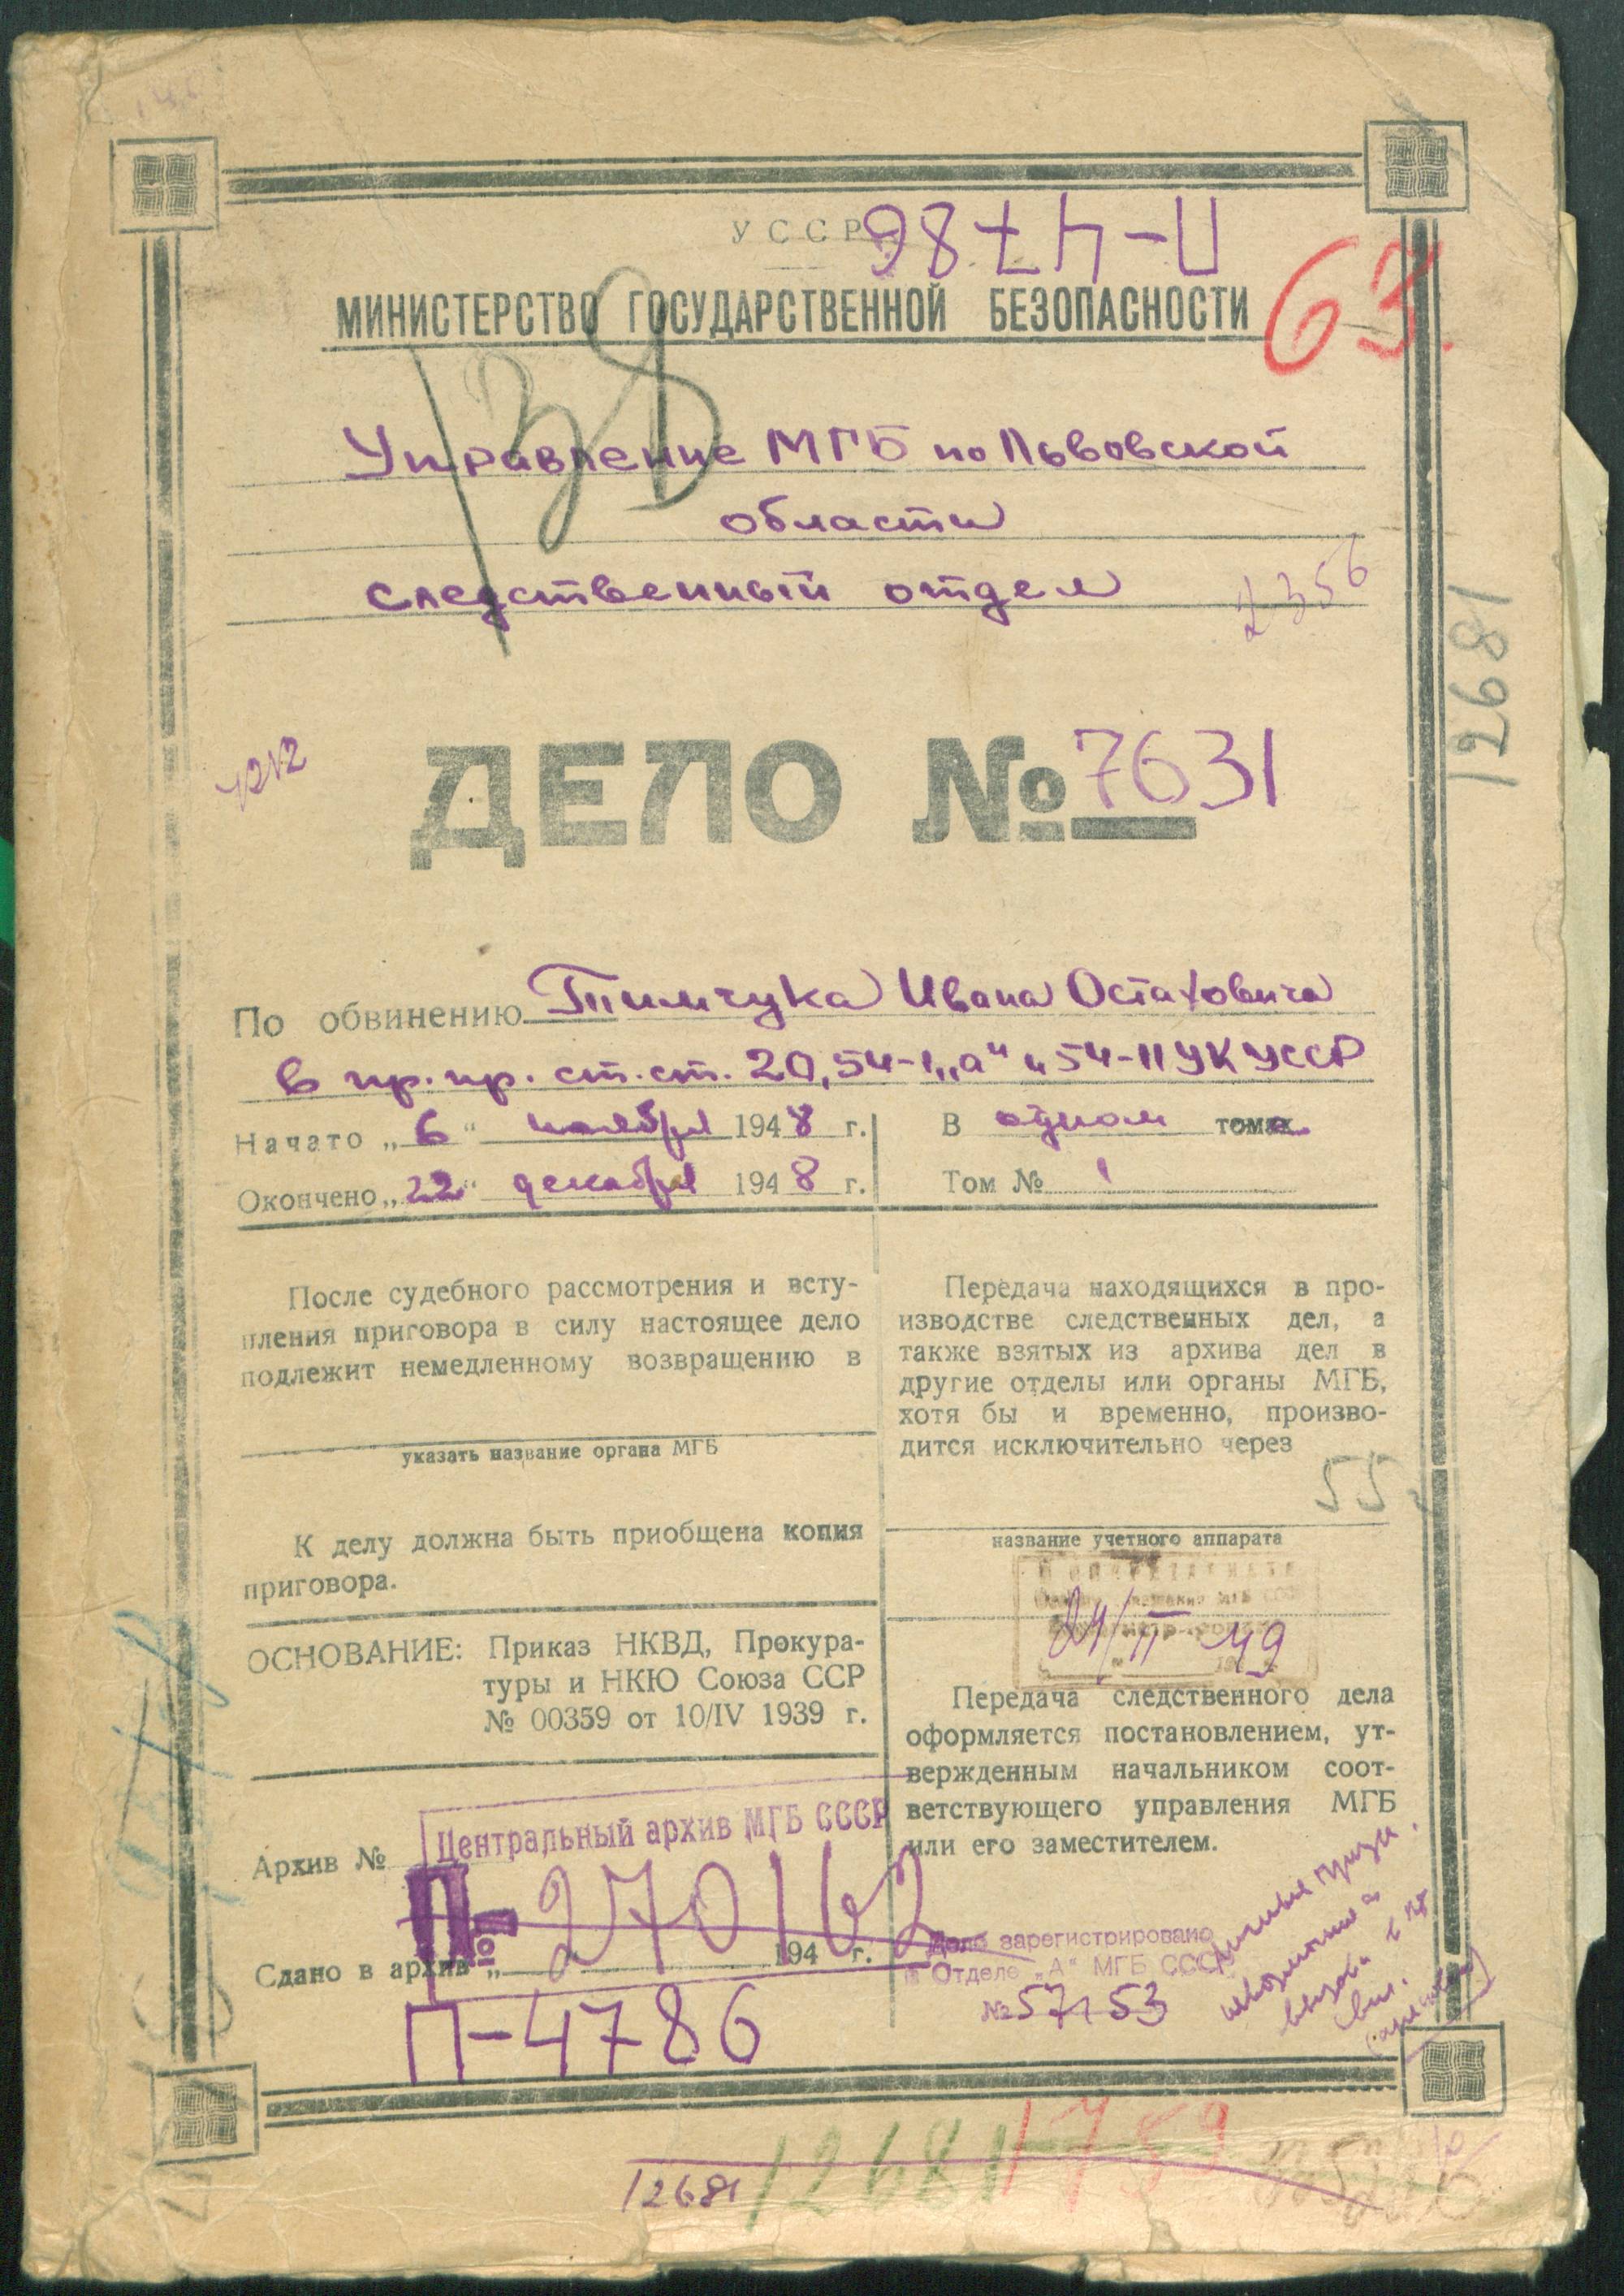 УССР
П-4786
МИНИСТЕРСТВО ГОСУДАРСТВЕННОЙ БЕЗОПАСНОСТИ
63.
Управление МГБ по Львовской
области
следственный отдел
2356
12681
1212
ДЕЛО № 7631
По обвинению Тимчука Ивана Остаховича
в пр. пр. ст. ст. 20, 54-1„а" и 54-11 УК УССР
Начато „6" ноября 1948 г.
Окончено „22" декабря 1948 г.
В одном томе
Том № 1
После судебного рассмотрения и всту-
пления приговора в силу настоящее дело
подлежит немедленному возвращению в
указать название органа МГБ
К делу должна быть приобщена копия
приговора.
ОСНОВАНИЕ: Приказ НКВД, Прокура-
туры и НКЮ Союза ССР
№ 00359 от 10/IV 1939 г.
Передача находящихся в про-
изводстве следственных дел, а
также взятых из архива дел в
другие отделы или органы МГБ,
хотя бы и временно, произво-
дится исключительно через
55
название учетного аппарата
24/II-49
Передача следственного дела
оформляется постановлением, ут-
вержденным начальником соот-
ветствующего управления МГБ
или его заместителем.
Архив №
Центральный архив МГБ СССР
П-270162
№
Сдано в архив „ 194 г.
П-4786
Дело зарегистрировано
в Отделе „А" МГБ СССР
№ 57153
12681
12681
1759